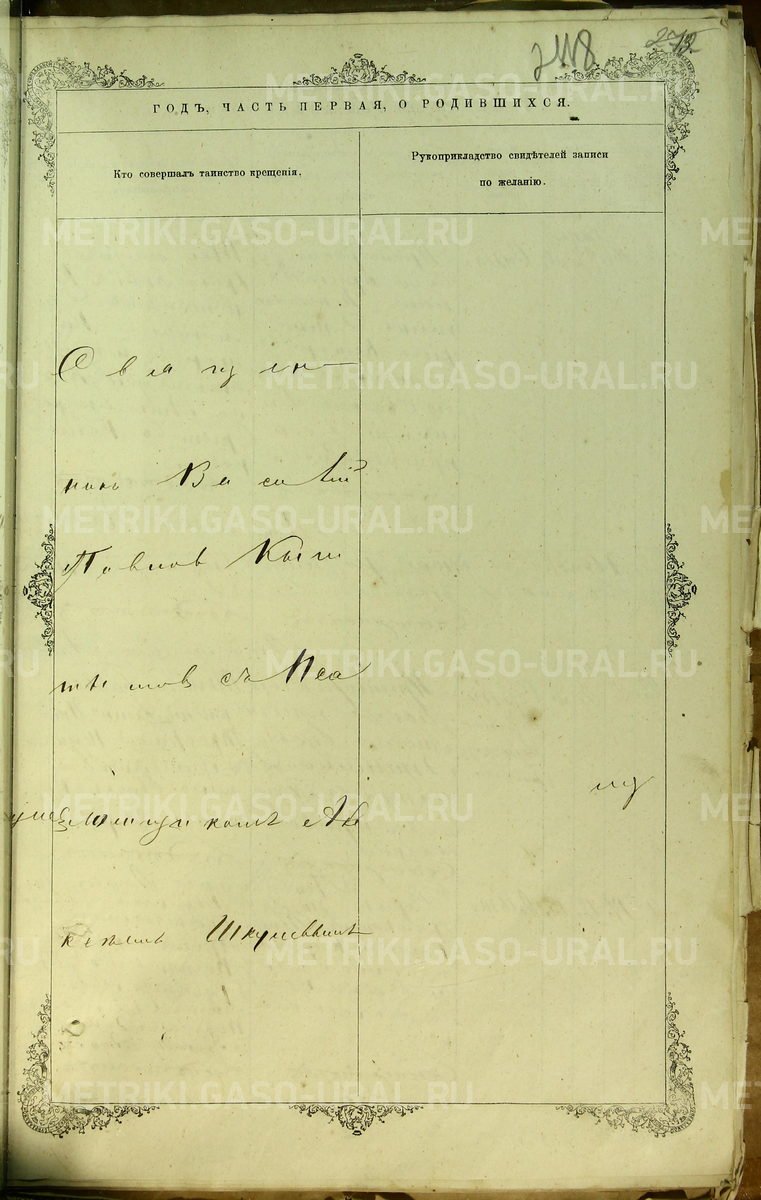 273
ГОДЪ, ЧАСТЬ ПЕРВАЯ, О РОДИВШИХСЯ.
Кто совершалъ таинство крещенія.
Рукоприкладство свидѣтелей записи
по желанію.
Священ
никъ Василій
Павловъ Кыш
тымовъ съ Пса
ломщикомъ Але
ксѣемъ Шкулевымъ
METRIKI.GASO-URAL.RU